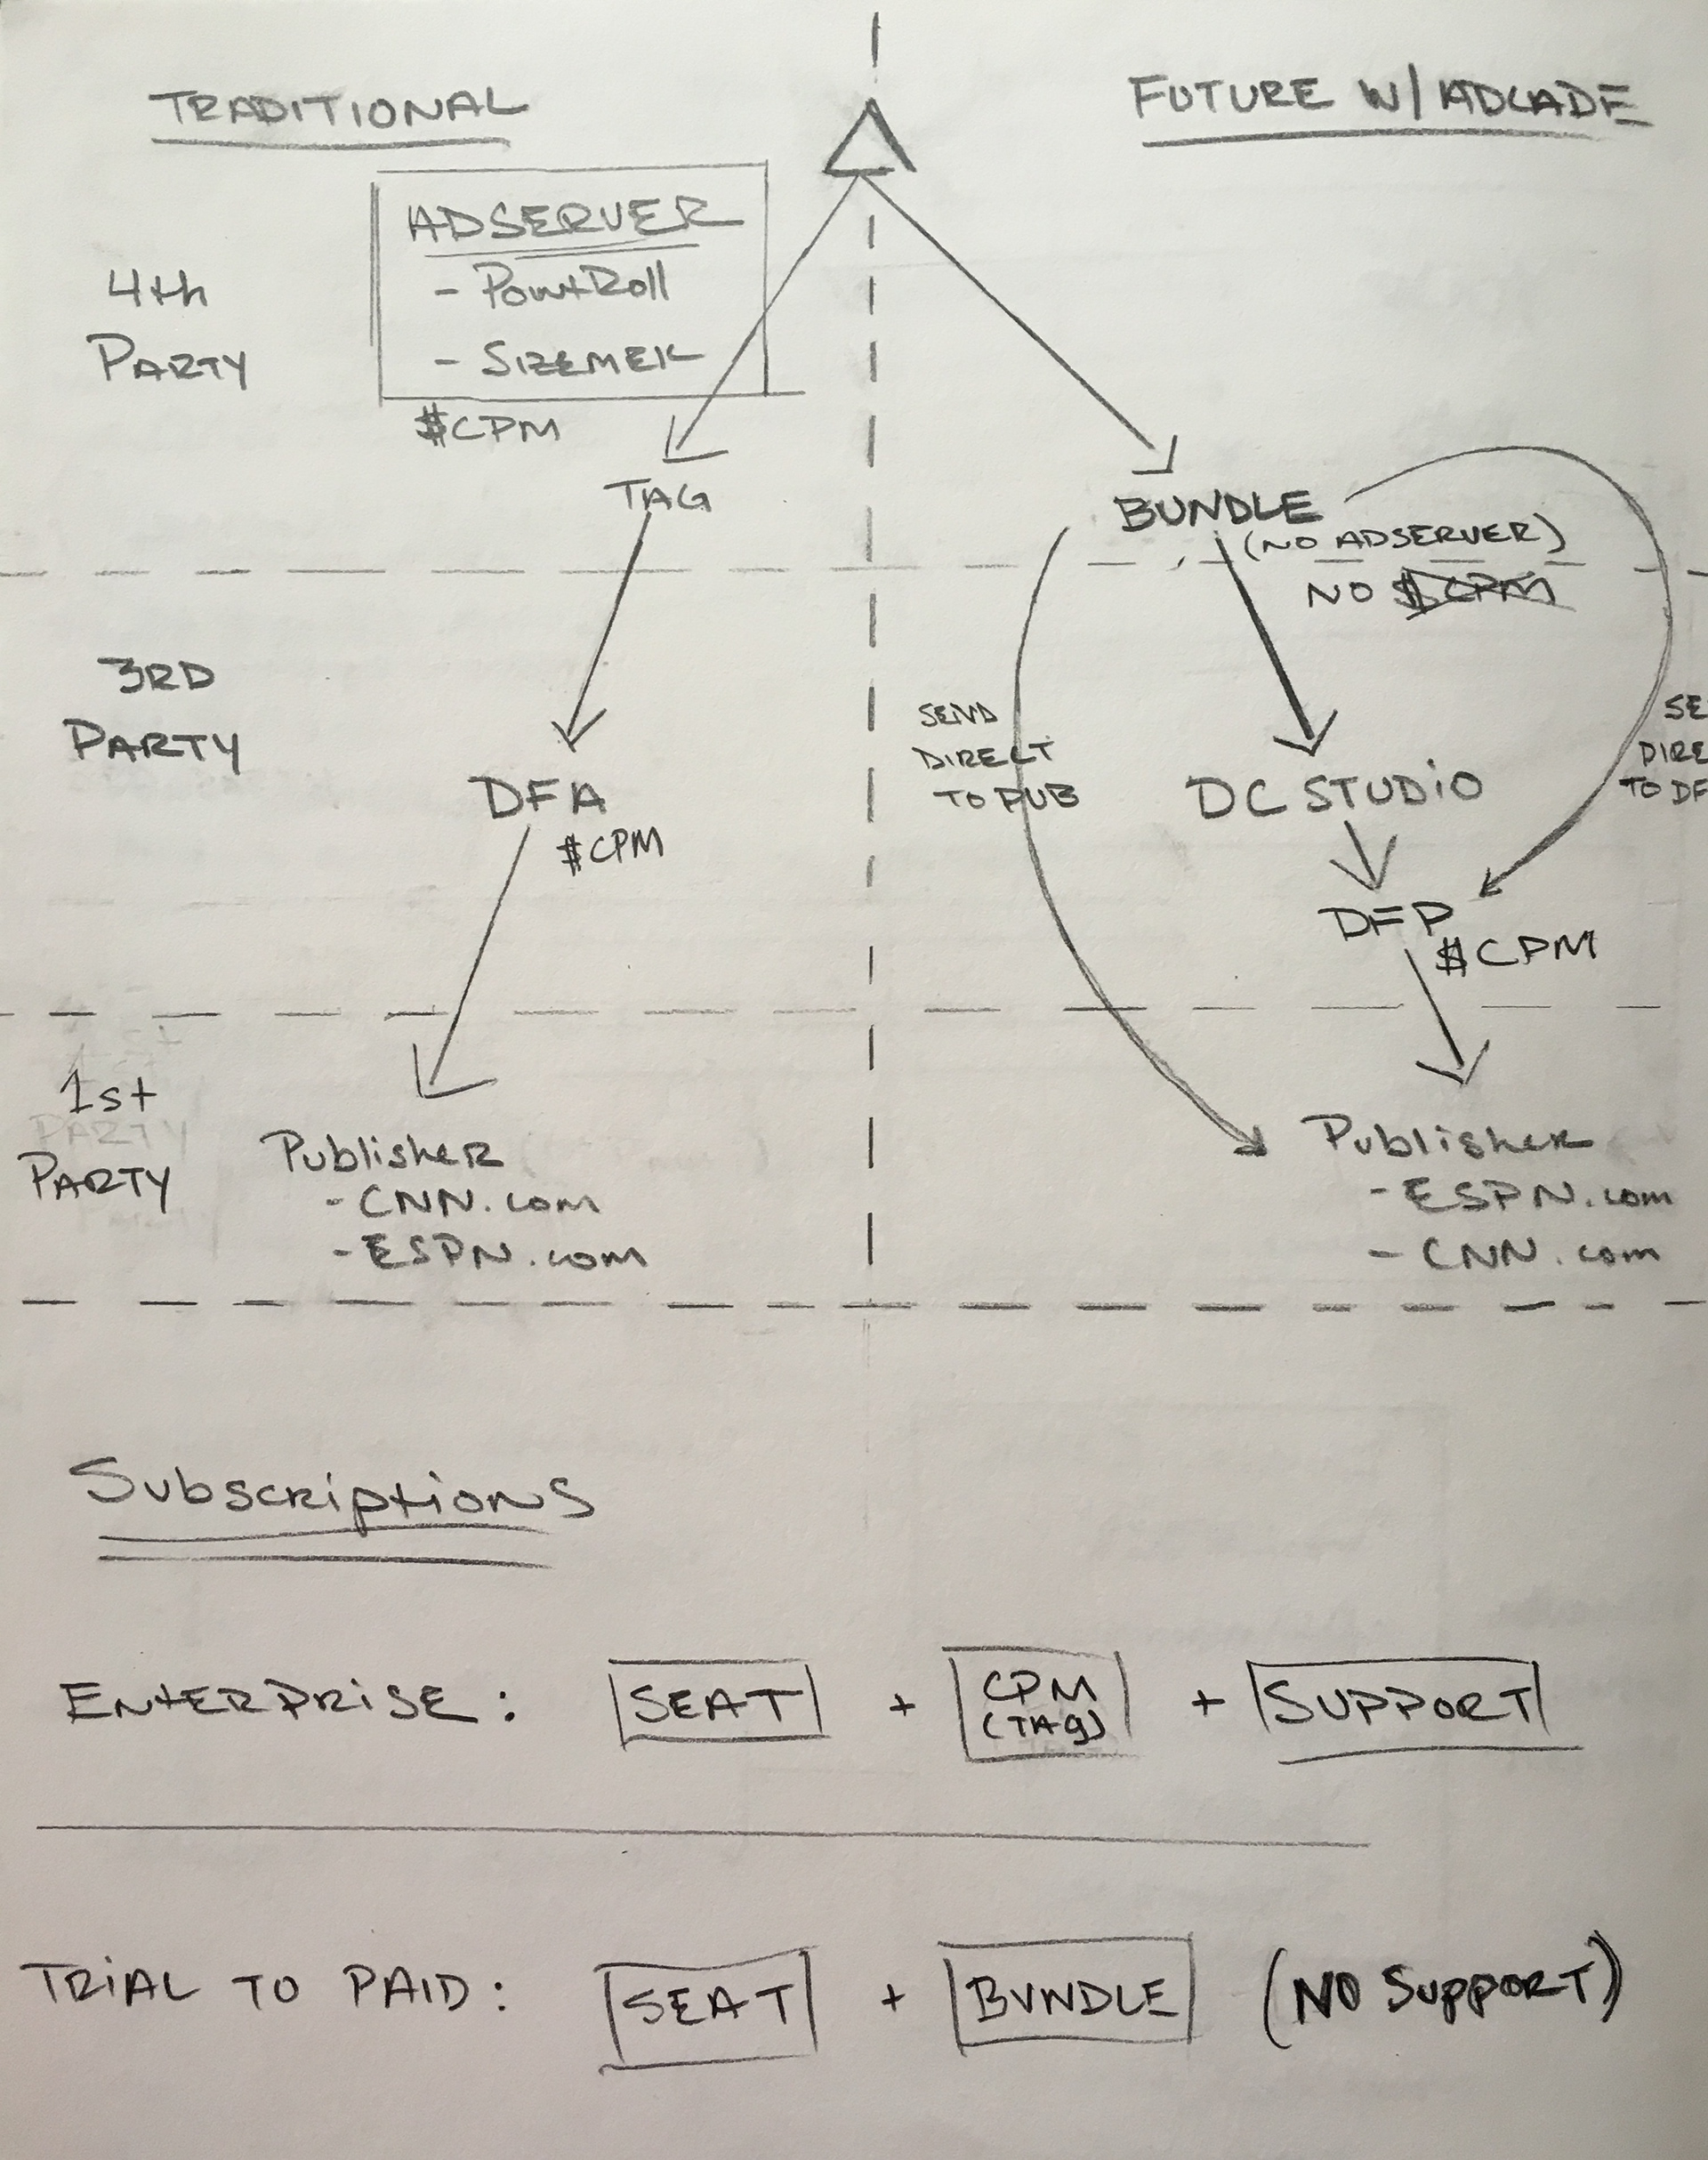 TRADITIONAL
FUTURE W/ ADCADE
ADSERVER
- PointRoll
- SIZEMEK
$CPM
4th
PARTY
TAG
BUNDLE
(NO ADSERVER)
NO $CPM
3RD
PARTY
SEND
DIRECT
TO PUB
SE
DIRE
TO DF
DFA
$CPM
DC STUDIO
DFP
$CPM
1st
PARTY
Publisher
- CNN.com
- ESPN.com
Publisher
- ESPN.com
- CNN.com
Subscriptions
ENTERPRISE: SEAT + CPM (TAG) + SUPPORT
TRIAL TO PAID: SEAT + BUNDLE (NO SUPPORT)